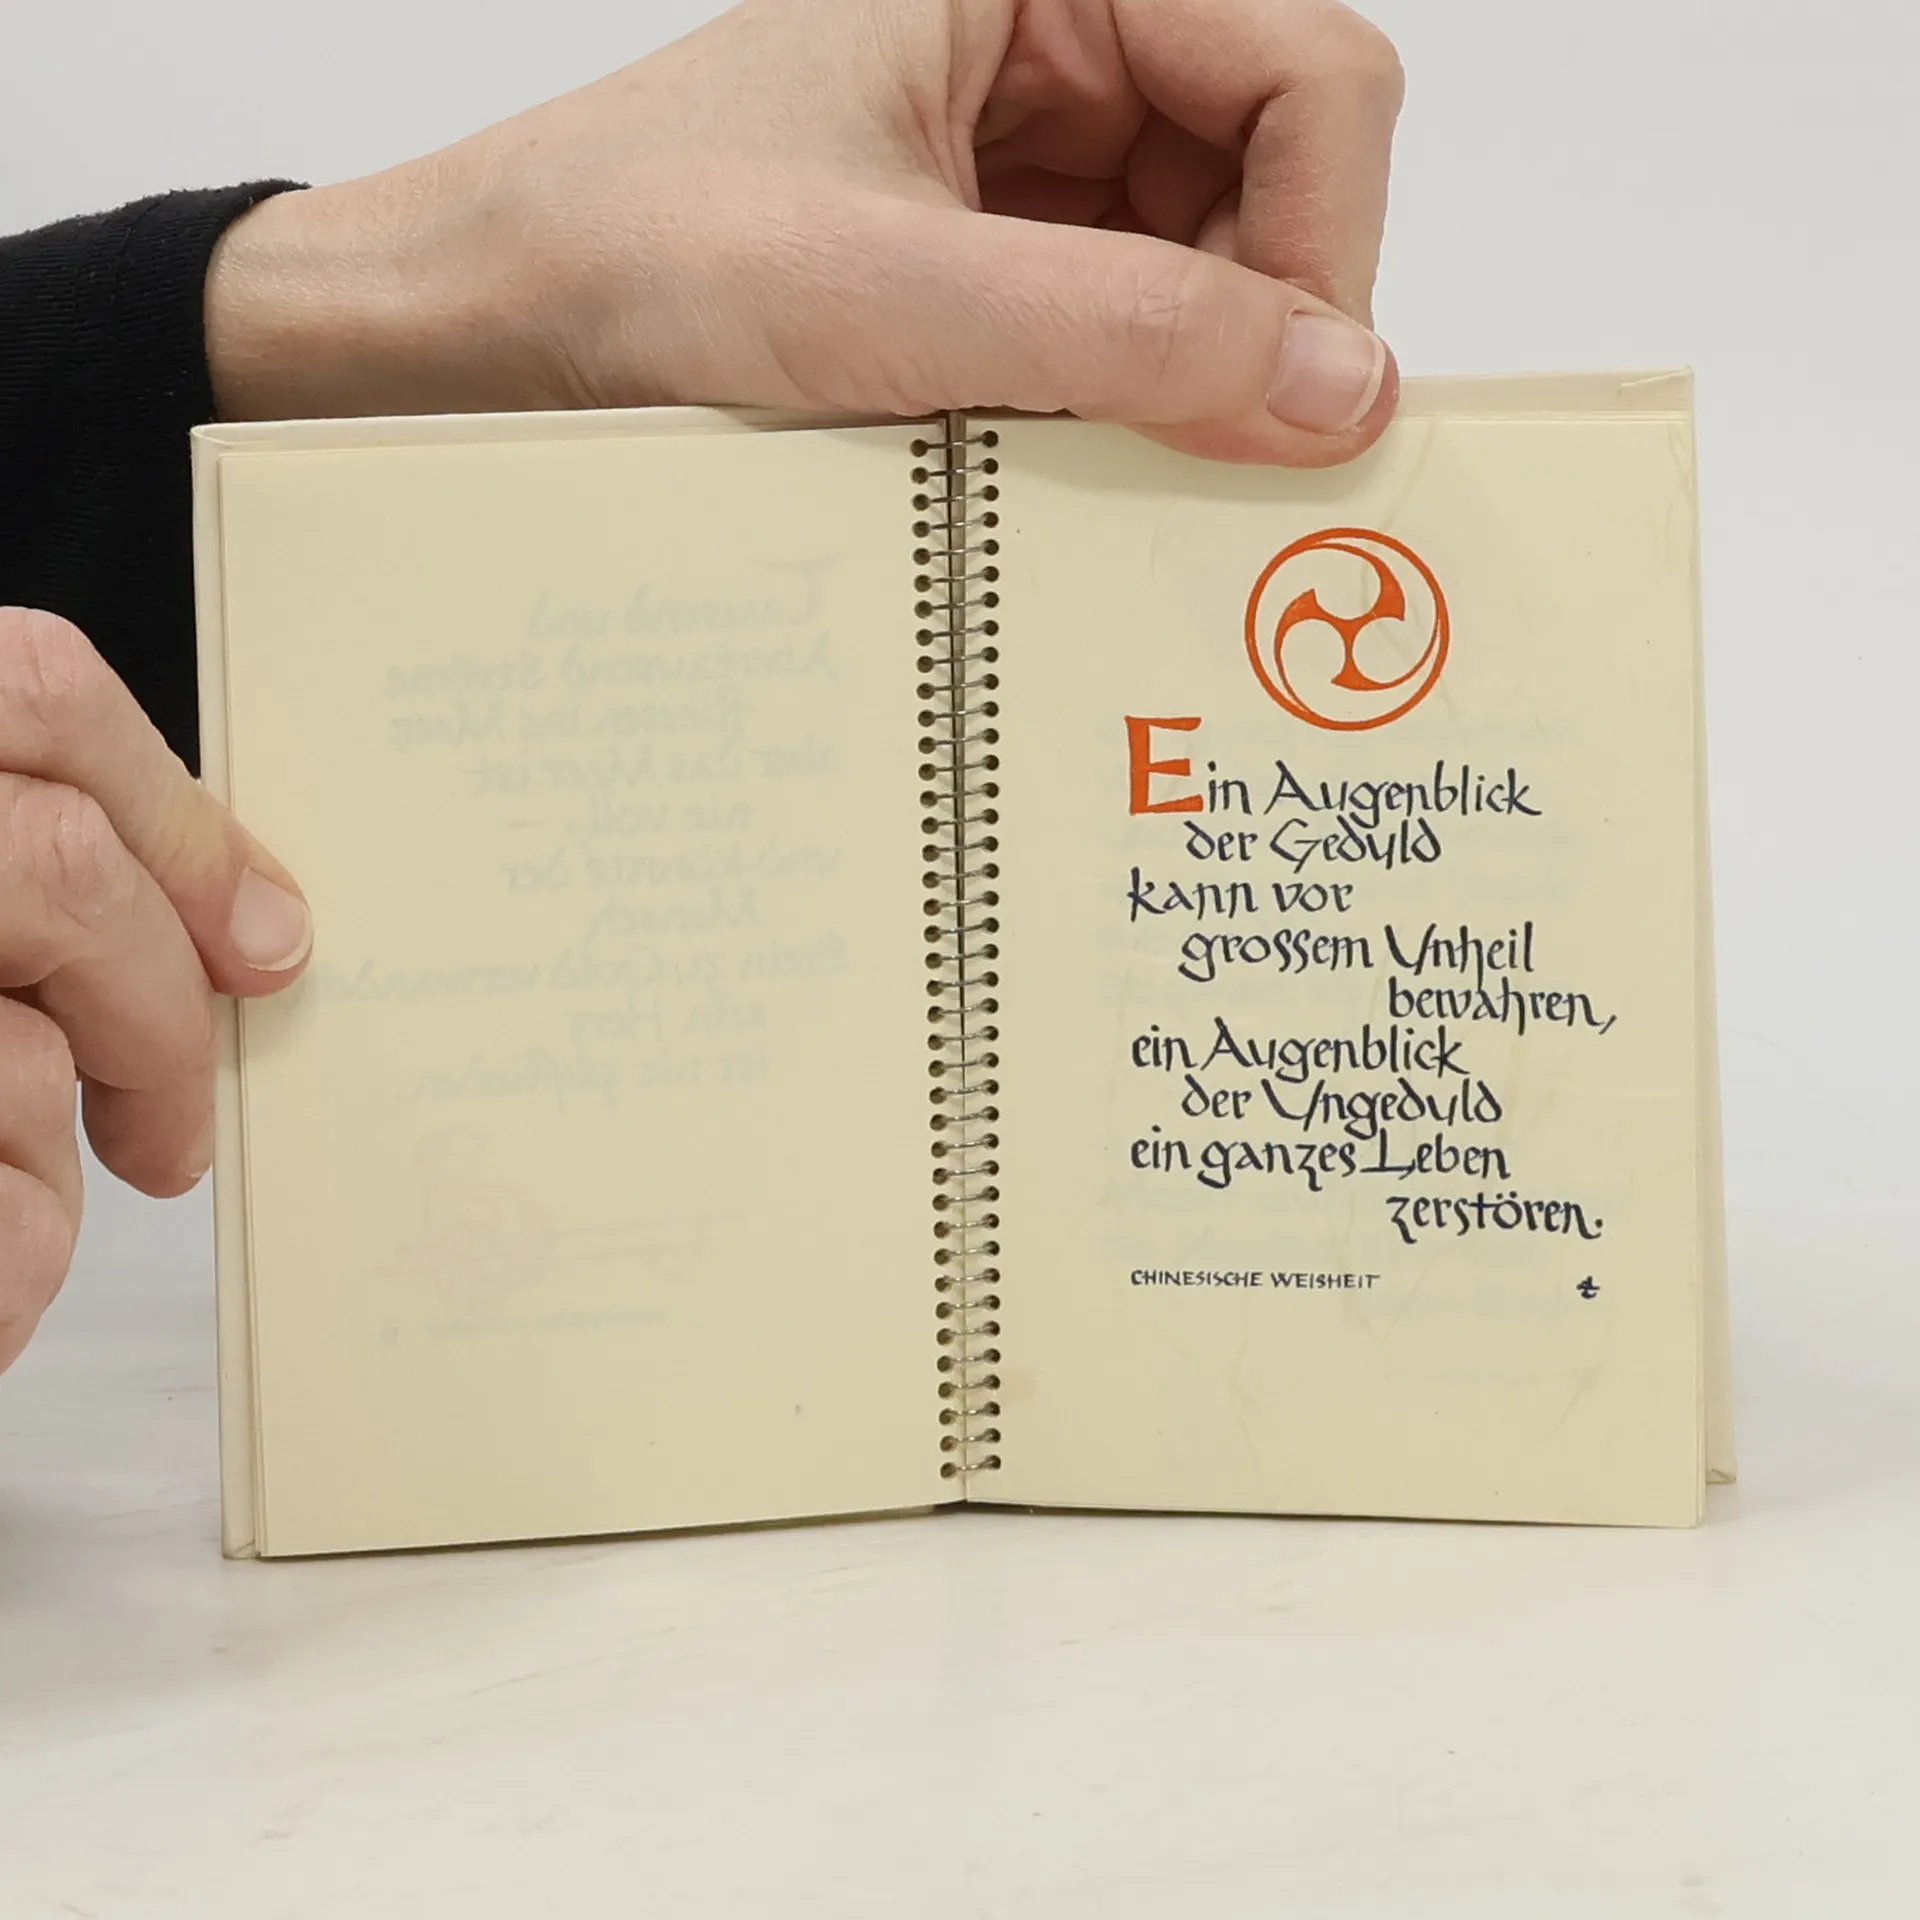 Ein Augenblick
der Geduld
kann vor
grossem Unheil
bewahren,
ein Augenblick
der Ungeduld
ein ganzes Leben
zerstören.
CHINESISCHE WEISHEIT